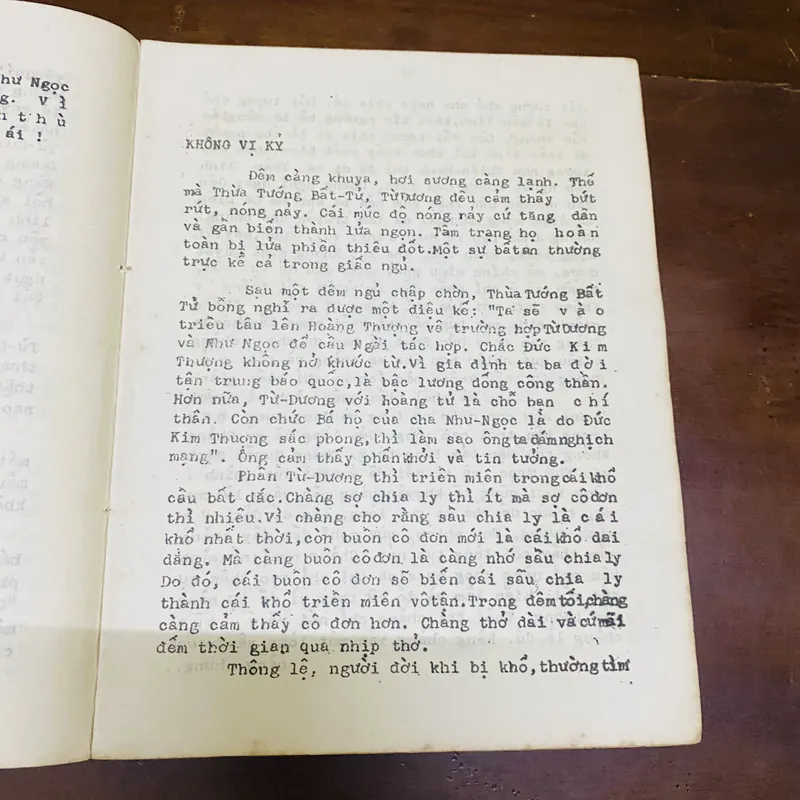 hư Ngọc
g. Vì
n t h ù
ái !
KHÔNG VỊ KỶ
Đêm càng khuya, hơi sương càng lạnh. Thế
mà Thừa Tướng Bất-Tử, Từ Dương đều cảm thấy bứt
rứt, nóng nảy. Cái mức độ nóng rảy cứ tăng dần
và gần biến thành lửa ngọn. Tâm trạng họ hoàn
toàn bị lửa phiền thiêu đốt.Một sự bất an thường
trực kể cả trong giấc ngủ.
Sau một đêm ngủ chập chờn, Thừa Tướng Bất
Tử bỗng nghỉ ra được một diệu kế: "Ta sẽ v à o
triều tâu lên Hoàng Thượng về trường hợp Từ Dương
và Như Ngọc để cầu Ngài tác hợp. Chắc Đức Kim
Thượng không nở khước từ.Vì gia đình ta ba đ ờ i
tận trung báo quốc,là bậc lương đống công thần.
Hơn nữa, Từ-Dương với hoàng tử là chỗ bạn c h í
thân. Còn chức Bá hộ của cha Nhu-Ngọc là do Đức
Kim Thượng sắc phong,thì làm sao ông ta dám nghịch
mạng". Ông cảm thấy phấn khởi và tin tưởng.
Phần Từ-Dương thì triền miên trong cái khổ
cầu bất đắc.Chàng sợ chia ly thì ít mà sợ cô đơn
thì nhiều.Vì chàng cho rằng sầu chia ly là c á i
khổ nhất thời,còn buồn cô đơn mới là cái khổ dai
dẳng. Mà càng buồn cô đơn là càng nhớ sầu chia ly
Do đó, cái buồn cô đơn sẽ biến cái sầu chia ly
thành cái khổ triền miên vô tận.Trong đêm tối,chàng
càng cảm thấy cô đơn hơn. Chàng thở dài và cứ mãi
đếm thời gian qua nhịp thở.
Thông lệ, người đời khi bị khổ, thường tìm